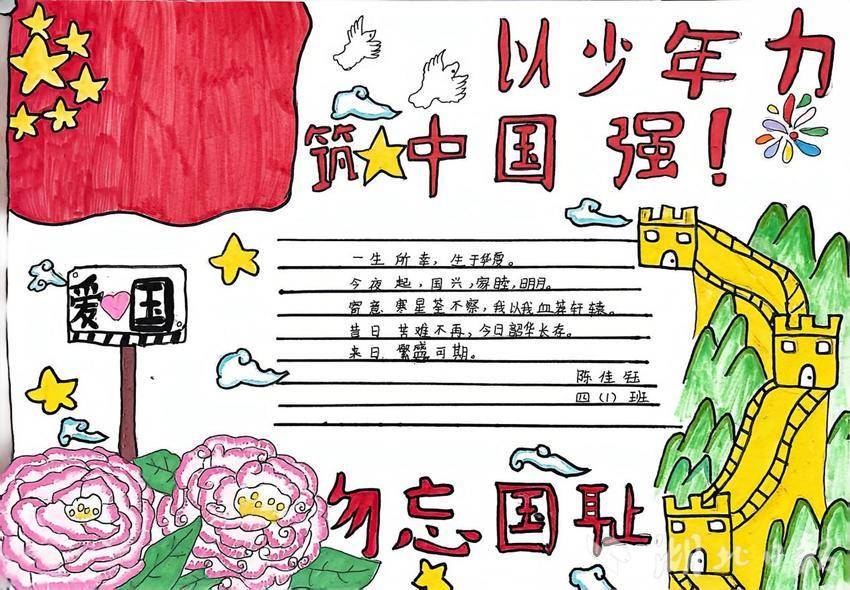 以少年力
筑中国强!
爱国
一生所幸，生于华夏。
今夜起，国兴，家睦，明月。
寄意寒星荃不察，我以我血荐轩辕。
昔日苦难不再，今日韶华长存。
来日繁盛可期。
陈佳钰
四（1）班
勿忘国耻
湖北日报